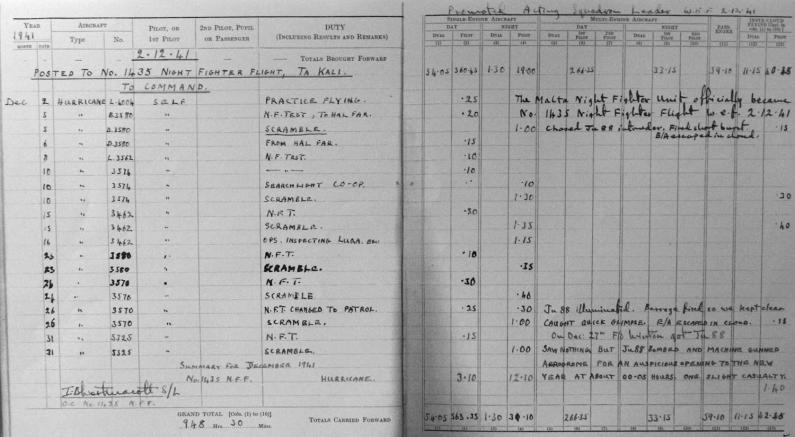 YEAR 1941
AIRCRAFT
PILOT, OR 1ST PILOT
2ND PILOT, PUPIL OR PASSENGER
DUTY
(INCLUDING RESULTS AND REMARKS)
MONTH DATE Type No.
2-12-41
TOTALS BROUGHT FORWARD
POSTED TO NO. 1435 NIGHT FIGHTER FLIGHT, TA KALI.
TO COMMAND.
Dec 2 HURRICANE SELF PRACTICE FLYING.
5 " " N.F. TEST, TO HAL FAR.
5 " " SCRAMBLE.
6 " " FROM HAL FAR.
8 " " N.F. TEST.
10 " 3574 "
10 " 3574 " SEARCHLIGHT CO-OP.
10 " 3574 " SCRAMBLE.
15 " 3462 " N.F.T.
15 " 3462 " SCRAMBLE.
16 " 3462 " OPS. INSPECTING LUQA.
23 " 3580 " N.F.T.
23 " 3580 " SCRAMBLE.
26 " 3570 " N.F.T.
26 " 3570 " SCRAMBLE
26 " 3570 " N.F.T. CHANGED TO PATROL.
26 " 3570 " SCRAMBLE.
31 " " N.F.T.
31 " " SCRAMBLE.
SUMMARY FOR DECEMBER 1941
No. 1435 N.F.F. HURRICANE.
S/L
O.C. No 1435 N.F.F.
GRAND TOTAL [Cols. (1) to (10)]
948 Hrs. 30 Mins.
TOTALS CARRIED FORWARD
Promoted Acting Squadron Leader W.E.F. 2-12-41
SINGLE-ENGINE AIRCRAFT MULTI-ENGINE AIRCRAFT
DAY NIGHT DAY NIGHT
DUAL PILOT DUAL PILOT DUAL 1ST PILOT 2ND PILOT DUAL 1ST PILOT 2ND PILOT
(1) (2) (3) (4) (5) (6) (7) (8) (9) (10) (11) (12) (13)
54.05 360.45 1.30 19.00 266.55 33.15 59.10 11.15
.25 The Malta Night Fighter Unit officially became
.20 No. 1435 Night Fighter Flight w.e.f. 2-12-41
1.00 Chased Ju 88 intruder. Fired short burst .15
E/A escaped in cloud.
.15
.10
.10
.10
1.30 .30
.30
1.35 .40
1.15
.10
.35
.30
.40
.25 .30 Ju 88 illuminated. Barrage fired so we kept clear
1.00 CAUGHT QUICK GLIMPSE. E/A ESCAPED IN CLOUD. .15
.15 On Dec. 27th F/O Winton got Ju 88
1.00 SAW NOTHING BUT JU 88 BOMBED AND MACHINE GUNNED
AERODROME FOR AN AUSPICIOUS OPENING TO THE NEW
3.10 12.10 YEAR AT ABOUT 00.05 HOURS. ONE SLIGHT CASUALTY.
1.40
54.05 1.30 266.55 33.15 59.10 11.15